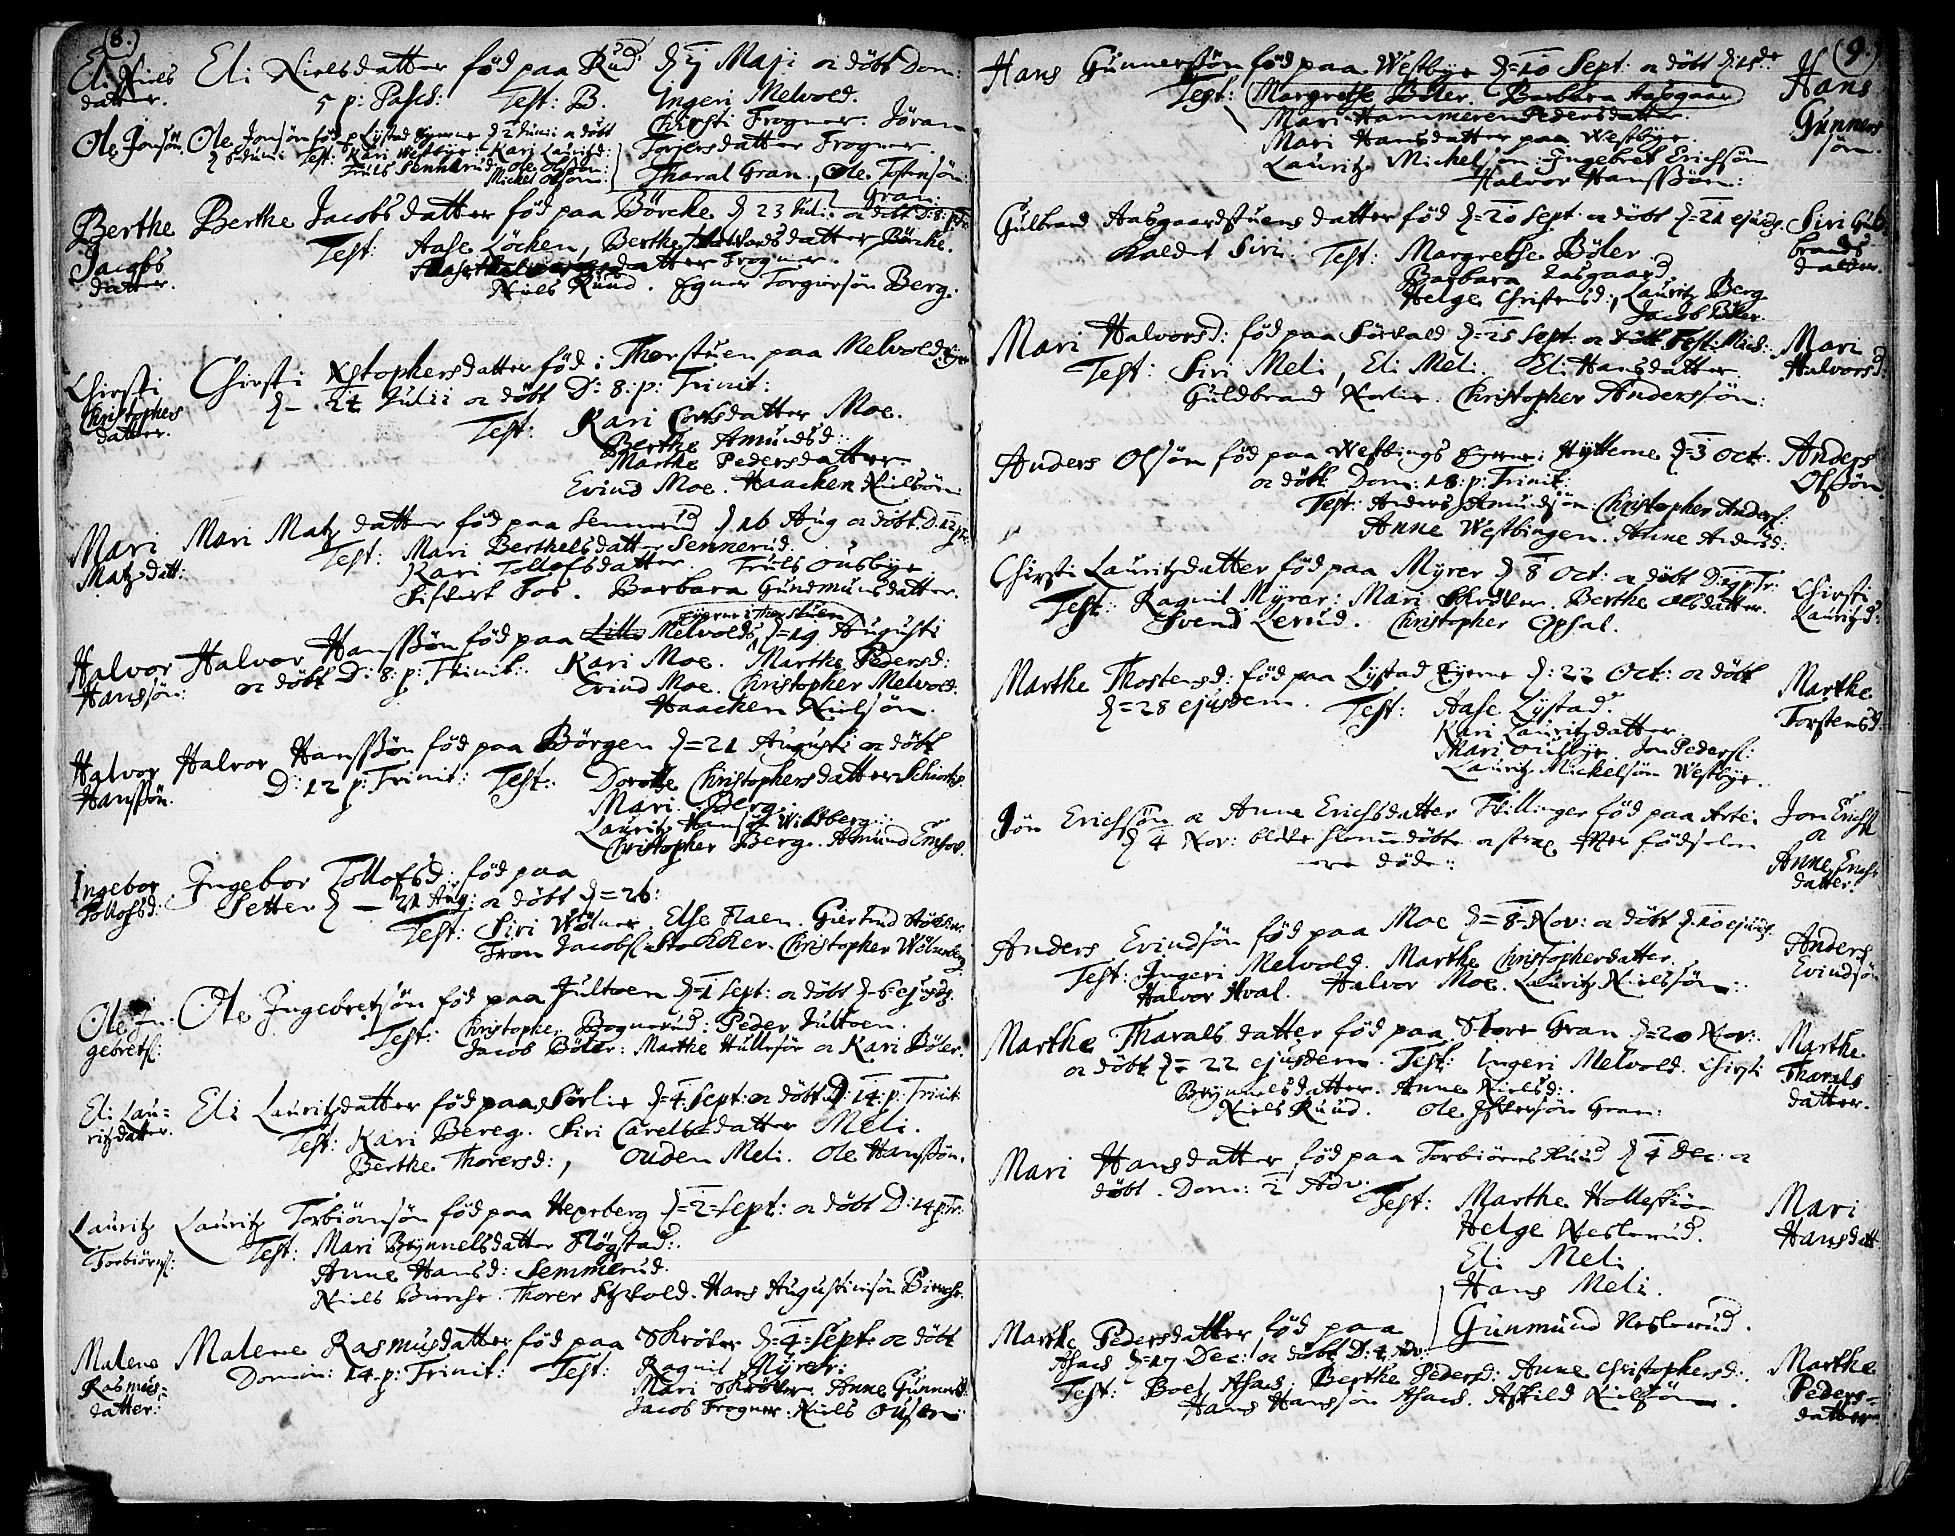 (8.)
Eli Niels
datter.
Eli Nielsdatter föd paa Rud d. 7 Maji oc döbt Dom:
5 p: Pasch: Test: B. Ingeri Melvold.
Chirsti Frogner. Jöran
Torgersdatter Frogner.
Tharal Gran, Ole Tostensön
Gran.
Ole Jonsön
Ole Jonsön föd p. Lystad Eyerne d 2 Junii oc döbt
Test: Kari Westbye. Kari Lauritzd:
Truls Sennerud. Ole Olsøn:
Michel Olsøn.
Berthe
Jacobs
datter.
Berthe Jacobsdatter föd paa Börcke d 23 Juli. oc döbt D: 8: p:
Test: Aase Löcken, Berthe datter Börcke.
datter Frogner.
Niels Ruud. Egner Torgiersön Berg.
Chirsti
Christophers
datter.
Chirsti Xstophersdatter föd i Thorstuen paa Melvold
d- 24 Julii oc döbt D: 8: p: Trinit:
Test: Kari Cortsdatter Moe.
Berthe Amundsd:
Marthe Pedersdatter.
Evind Moe. Haachen Nielsön
Mari
Matzdatt:
Mari Matzdatter föd paa Sennerud d. 16 Aug oc döbt. D: 12 p:
Test: Mari Berthelsdatter Sennerud.
Kari Tollofsdatter. Truls Ousbye.
Sifvert Fos. Barbara Gundmunsdatter.
Halvor
Hanssön:
Halvor Hanssön föd paa Melvolds Eyerne i Thorstuen d=19 Augusti
oc döbt D: 8: p: Trinit: Kari Moe. Marthe Pedersd:
Evind Moe. Christopher Melvold.
Haachen Nielsön.
Halvor
Hanssön.
Halvor Hanssön föd paa Börgen d=21 Augusti oc döbt
D: 12 p: Trinit: Test: Dorothe Christophersdatter
Mari Berg.
Lauritz Hansön Wildberg.
Christopher Berg. Amund
Ingebor
Tollofsd:
Ingebor Tollofsd: föd paa
Setter d- 21 Aug: oc döbt d=26:
Test: Siri Wölner Else Flaen. Giertrud
Tron Jacobs: Stokker. Christopher Wölnerberg
Ole In-
gebrets:
Ole Ingebretsön föd paa Jultoen d=1 Sept: oc döbt d-6 ejusd.
Test: Christopher Bognerud: Peder Jultoen.
Jacob Böler: Marthe Hullesiör oc Kari Böler.
Eli Lau-
ritzdatter.
Eli Lauritzdatter föd paa Sörlie d=4: Sept: oc döbt D: 14: p: Trinit:
Test: Kari Bereg. Siri Carelsdatter Meli.
Berthe Thorersd:, Ouden Meli. Ole Hanssön.
Lauritz
Torbiörns:
Lauritz Torbiörnsön föd paa Hexeberg d=2=Sept: oc döbt D: 14 p: Tr:
Test: Mari Brynnelsdatter Flögstad:
Anne Hansd: Semmerud.
Niels Bierche. Thorer Habold. Hans Augustinsön Bierche.
Malene
Rasmus-
datter:
Malene Rasmusdatter föd paa Skröver d=4=Sept: oc döbt
Domin: 14. p: Trinit: Test: Ragnil Myrer:
Mari Skröver. Anne Gunnersd:
Jacob Frogner. Niels Ousen
(9.)
Hans Gunnersön föd paa Westbye d=10 Sept: oc döbt d. 15de
Test: Margrethe Böler. Barbara Aasgaar
Mari Hammeren Pedersdatter.
Mari Hansdatter paa Westbye.
Lauritz Michelsön. Ingebret Erichsön
Halvor Hanssön:
Hans
Gunners
sön.
Gulbrand Aasgaardstuens datter föd d=20 Sept. oc döbt d=21 ejusd.
Kaldet Siri. Test: Margrethe Böler
Barbara Aasgaard.
Helge Christensd:, Lauritz Berg
Jacob Böler.
Siri Gul
brands
datter.
Mari Halvorsd: föd paa Sörvald d=25 Sept: oc döbt Fest. Mich:
Test: Siri Meli, Eli Meli. Eli Hansdatter
Guldbrand Norlie. Christopher Anderssön:
Mari
Halvorsd:
Anders Olsön föd paa Westbings Eyerne: Hytterne d=3 Oct.
oc döbt Dom: 18: p: Trinit:
Test: Anders Amundsön. Christopher Anders:
Anne Westbingen. Anne Andersd:
Anders
Olsön.
Chirsti Lauritzdatter föd paa Myrer d 8 Oct: oc döbt D: 19 p Tr:
Test: Ragnil Myrer: Mari Skröver. Berthe Olsdatter.
Svend Lerud. Christopher Opsal.
Chirsti
Lauritzd:
Marthe Thostensd: föd paa Lystad Eyerne d: 22 Oct: oc döbt
d=28 ejusdem. Test: Aase Lystad.
Kari Lauritzdatter.
Mari Ousbye. Jon Peders:
Lauritz Mickelsön Westbye.
Marthe
Torstensd:
Jön Erichsön oc Anne Erichsdatter Tvillinger föd paa Arte:
d 4 Nov: bleve hiemmedöbte oc strax efter födselen
ere döde:
Jon Erichs
oc
Anne Erichs
datter.
Anders Evindsön föd paa Moe d=8-Nov: oc döbt d. 10 ejusd.
Test: Ingeri Melvold. Marthe Christophersdatter.
Halvor Hval. Halvor Moe. Lauritz Nielssön:
Anders
Evindsön
Marthe Tharalsdatter föd paa Store Gran d=20 Nov:
oc döbt d= 22 ejusdem. Test: Ingeri Melvold. Chirsti
Brynnelsdatter. Anne Nielsd:
Niels Ruud. Ole Iffversön Gran:
Marthe
Tharals
datter.
Mari Hansdatter föd paa Torbiörnsruud d 4 Dec: oc
döbt. Dom: 2 Adv:
Test: Marthe Hollesiör
Helge Neslerud.
Eli Meli
Hans Meli.
Gunmund Neslerud.
Mari
Hansdatt
Marthe Pedersdatter föd paa
Asacs d=17 Dec: oc döbt D: 4 Adv:
Test: Boel Asacs. Berthe Pedersd: Anne Christophersd:
Hans Hanssön Asacs. Askild Nielsön.
Marthe
Peders-
datter